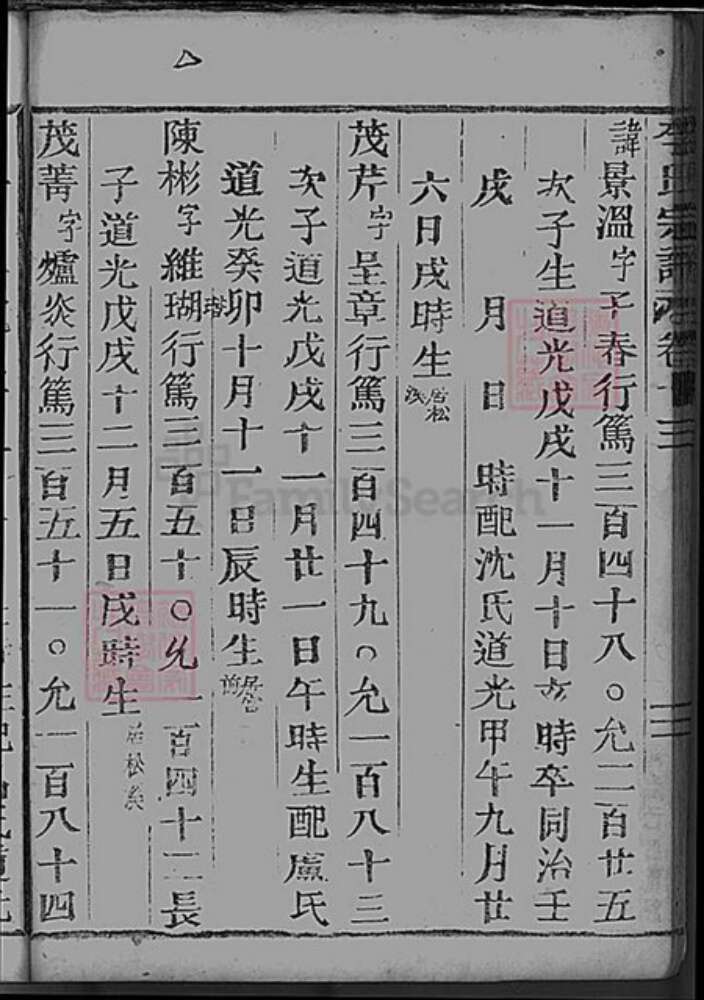 諱景溫字子春行篤三百四十八○允二百廿五
次子生道光戊戌十一月十日 時卒同治壬
戌 月 日 時配沈氏道光甲午九月廿
六日戌時生居松
茂芹字呈章行篤三百四十九○允一百八十三
次子道光戊戌十一月廿一日午時生配盧氏
道光癸卯十月十一日辰時生
陳彬字維瑚行篤三百五十○允一百四十二長
子道光戊戌十二月五日戌時生居松
茂菁字爐炎行篤三百五十一○允一百八十四
FamilySearch